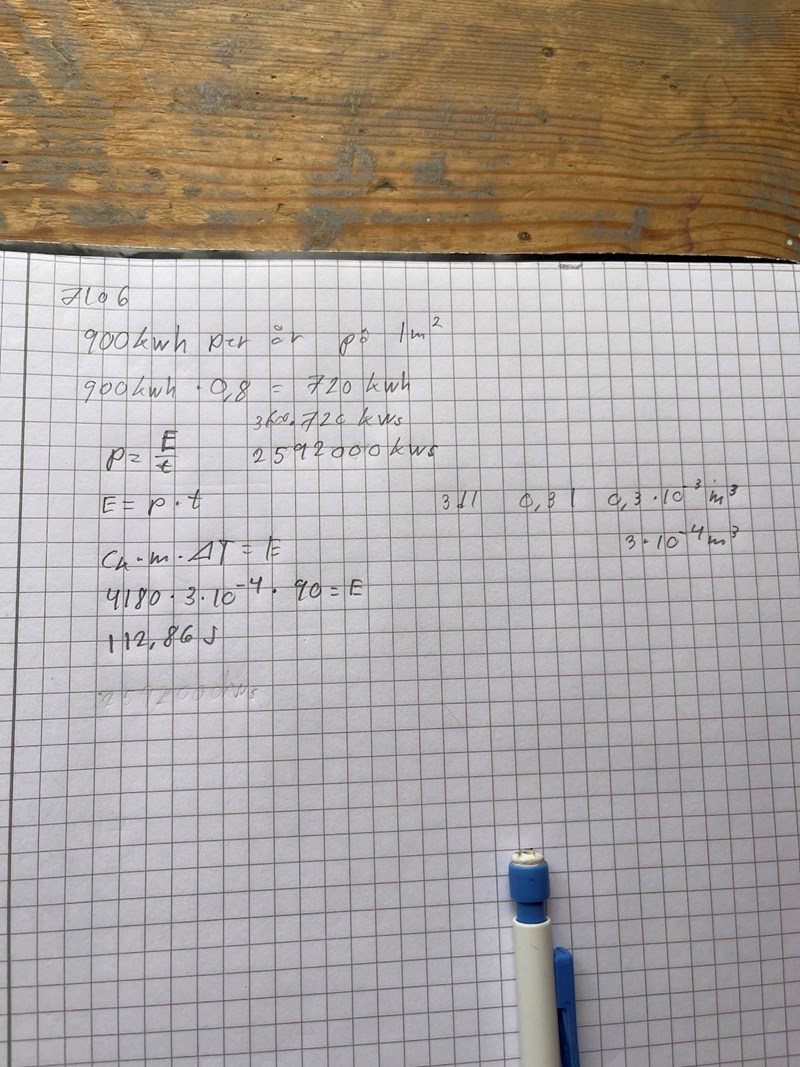 7106
900kwh per år på 1m²
900kwh · 0,8 = 720 kwh
3600·720 kws
P = E/t 2592000 kws
E = p · t 3dl 0,3 l 0,3 · 10⁻³ m³
3 · 10⁻⁴ m³
· m · ΔT = E
4180 · 3 · 10⁻⁴ · 90 = E
112,86 J
2592000kws